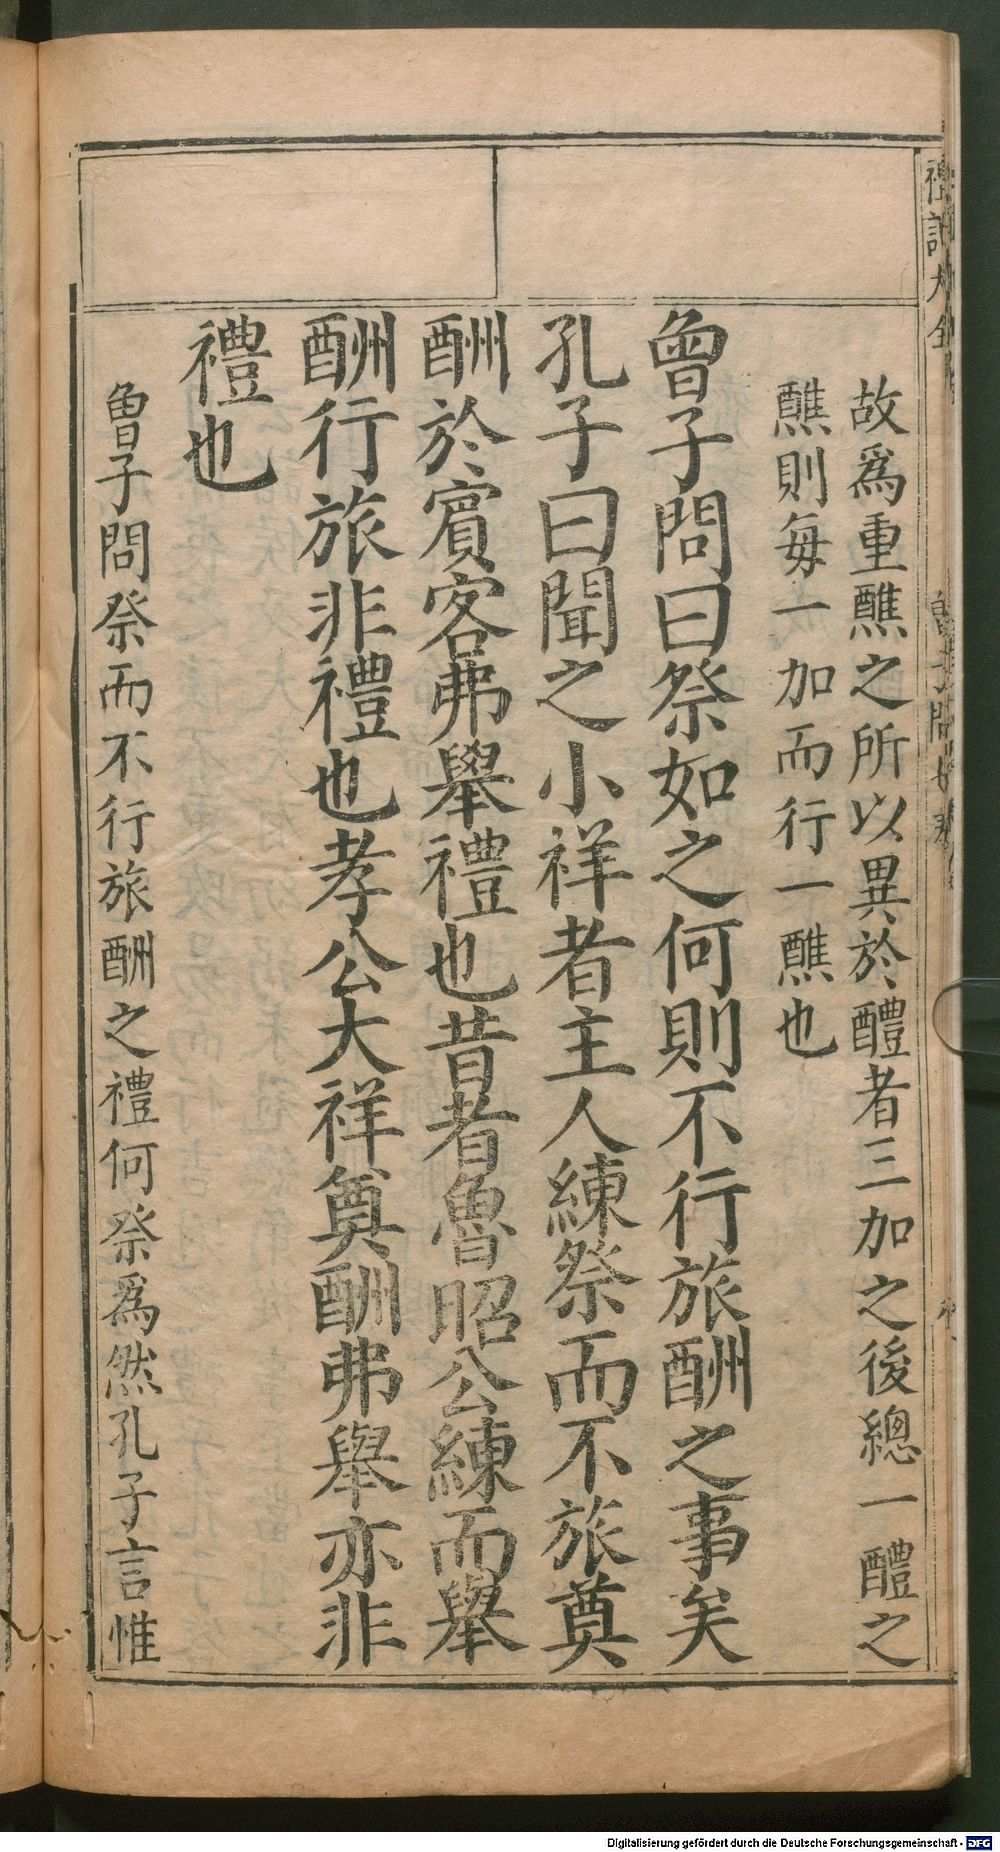 禮記大全
曾子問
故爲重醮之所以異於醴者三加之後總一醴之
醮則每一加而行一醮也
曾子問曰祭如之何則不行旅酬之事矣
孔子曰聞之小祥者主人練祭而不旅奠
酬於賓客弗舉禮也昔者魯昭公練而舉
酬行旅非禮也孝公大祥奠酬弗舉亦非
禮也
曾子問祭而不行旅酬之禮何祭爲然孔子言惟
Digitalisierung gefördert durch die Deutsche Forschungsgemeinschaft - DFG